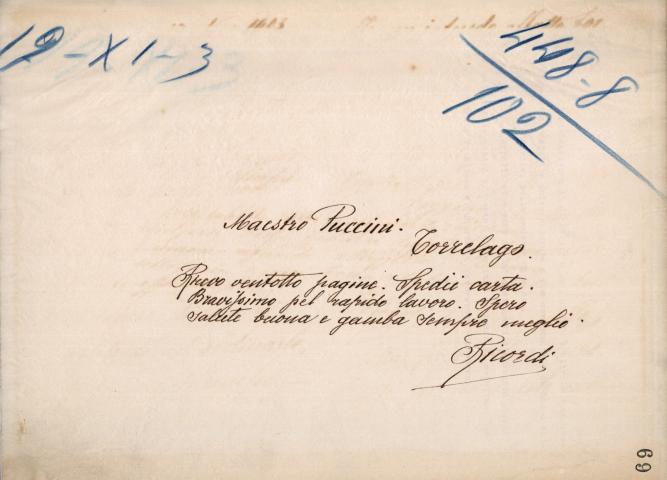 12-X 1-3
448-8
102
Maestro Puccini.
Torrelago.
Ricevo ventotto pagine. Spedii carta.
Bravissimo pel rapido lavoro. Spero
salute buona e gamba sempre meglio.
Ricordi
69